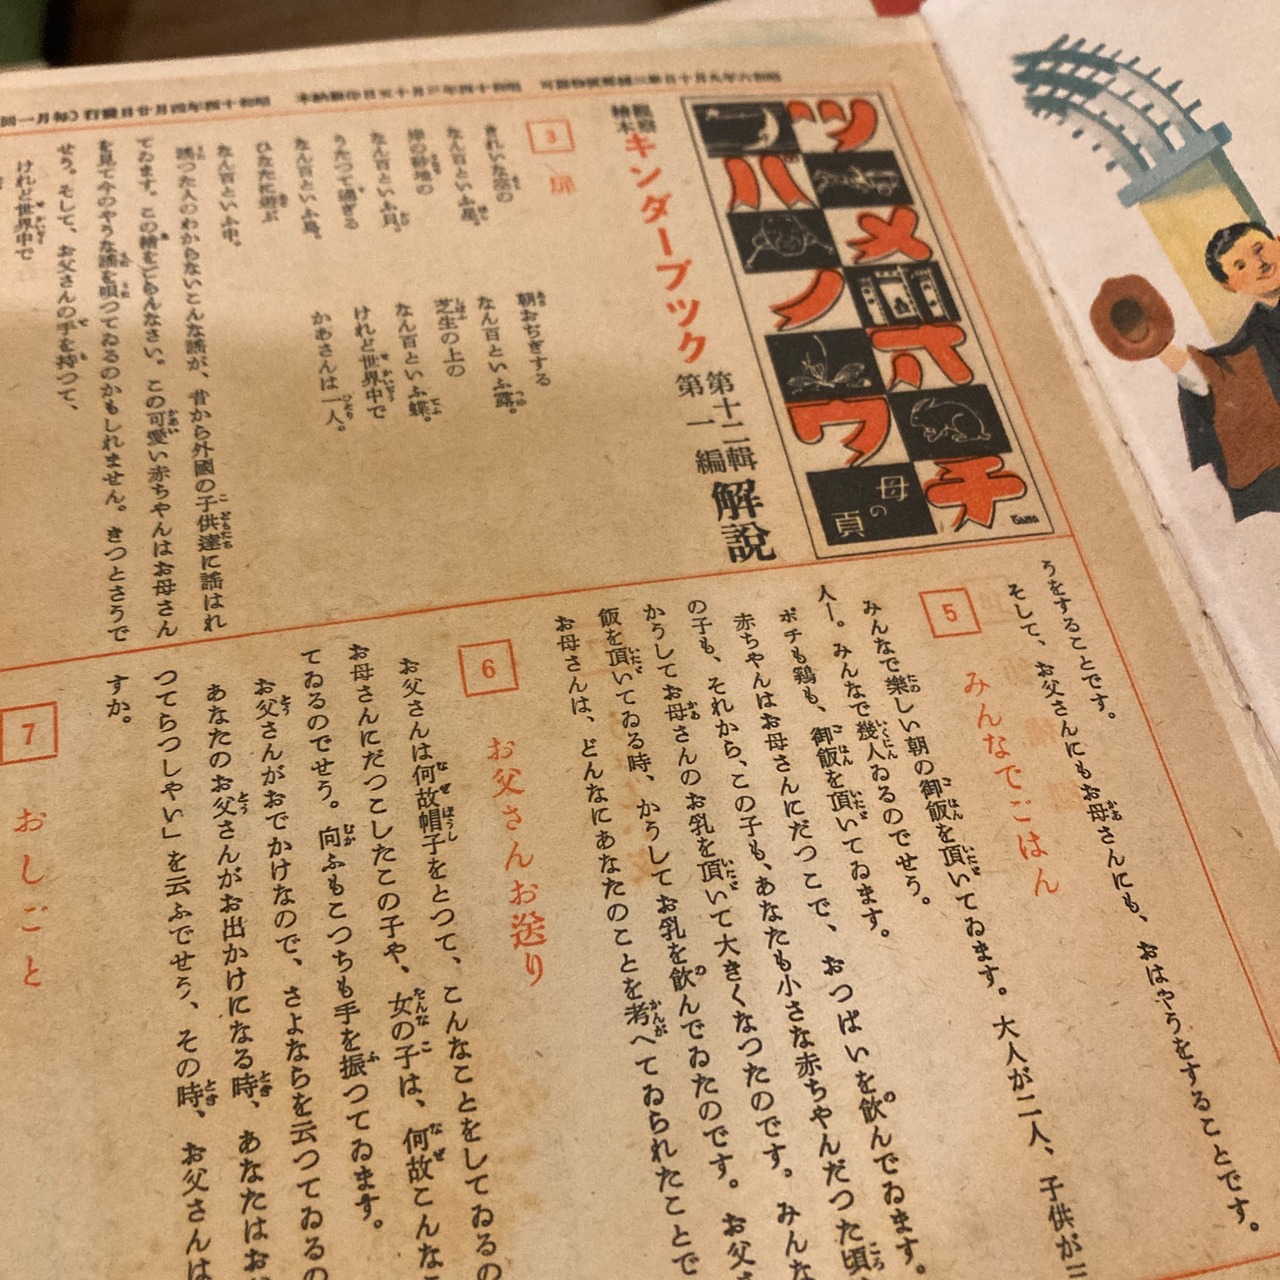 昭和六年九月十日第三種郵便物認可　昭和十四年三月十五日印刷納本　昭和十四年四月廿日發行（毎月一回
ツバメノオウチ
母の頁
觀察繪本
キンダーブック
第十二輯
第一編
解説
3
扉
きれいな空の
なん百といふ星。
岸の砂地の
なん百といふ貝。
うたつて過ぎる
なん百といふ鳥。
ひなたに遊ぶ
なん百といふ虫。
朝おぢぎする
なん百といふ露。
芝生の上の
なん百といふ蝶。
けれど世界中で
かあさんは一人。
誰つた人のわからないこんな謡が、昔から外國の子供達に謡はれ
てゐます。この繪をごらんなさい。この可愛い赤ちやんはお母さん
を見て今のやうな謡を唄つてゐるのかもしれません。きつとさうで
せう。そして、お父さんの手を持つて、
けれど世界中で
うをすることです。
そして、お父さんにもお母さんにも、おはやうをすることです。
5
みんなでごはん
みんなで樂しい朝の御飯を頂いてゐます。大人が二人、子供が二
人ー。みんなで幾人ゐるのでせう。
ポチも鶏も、御飯を頂いてゐます。
赤ちやんはお母さんにだつこで、おつぱいを飲んでゐます。
の子も、それから、この子も、あなたも小さな赤ちやんだつた頃、
かうしてお母さんのお乳を頂いて大きくなつたのです。みんな
飯を頂いてゐる時、かうしてお乳を飲んでゐたのです。お父さ
お母さんは、どんなにあなたのことを考へてゐられたことで
6
お父さんお送り
お父さんは何故帽子をとつて、こんなことをしてゐるの
お母さんにだつこしたこの子や、女の子は、何故こんな
てゐるのでせう。向ふもこつちも手を振つてゐます。
お父さんがおでかけなので、さよならを云つてゐるの
あなたのお父さんがお出かけになる時、あなたはお
つてらつしやい」を云ふでせう、その時、お父さんは
すか。
7
おしごと